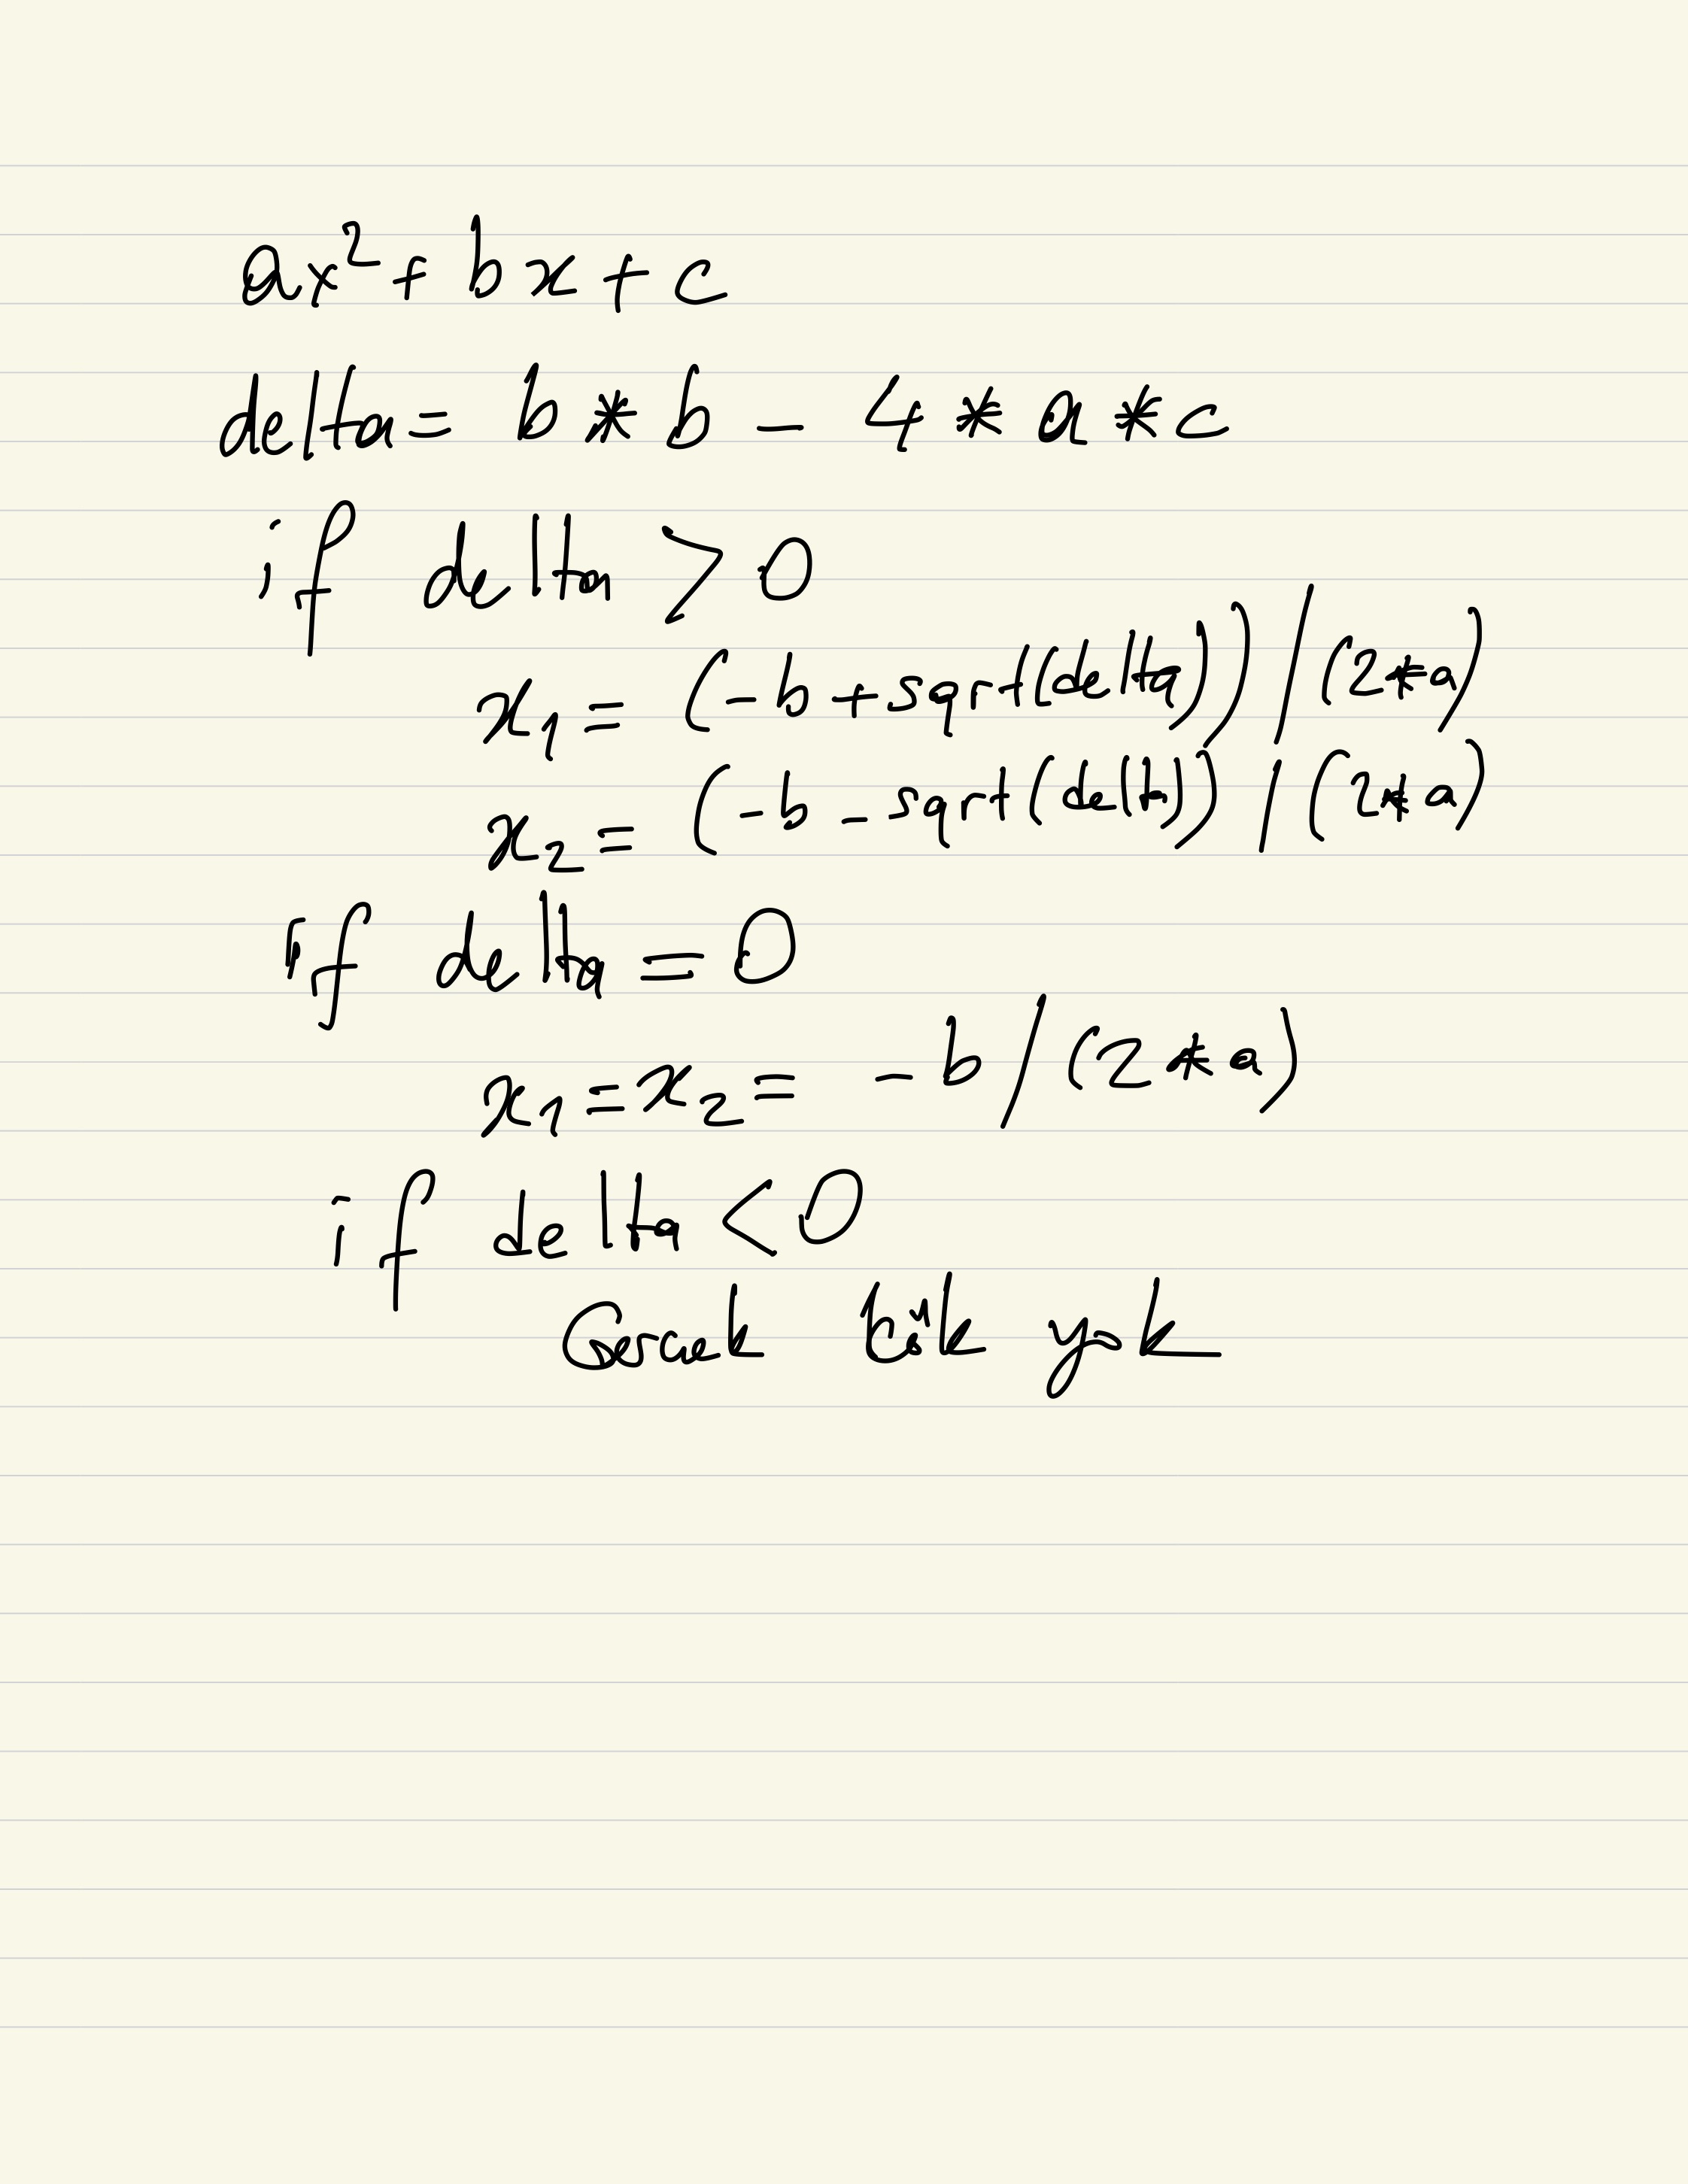 ax² + bx + c
delta = b * b - 4 * a * c
if delta > 0
x₁ = (-b + sqrt(delta)) / (2*a)
x₂ = (-b - sqrt(delta)) / (2*a)
if delta = 0
x₁ = x₂ = -b / (2*a)
if delta < 0
Gerçek kök yok